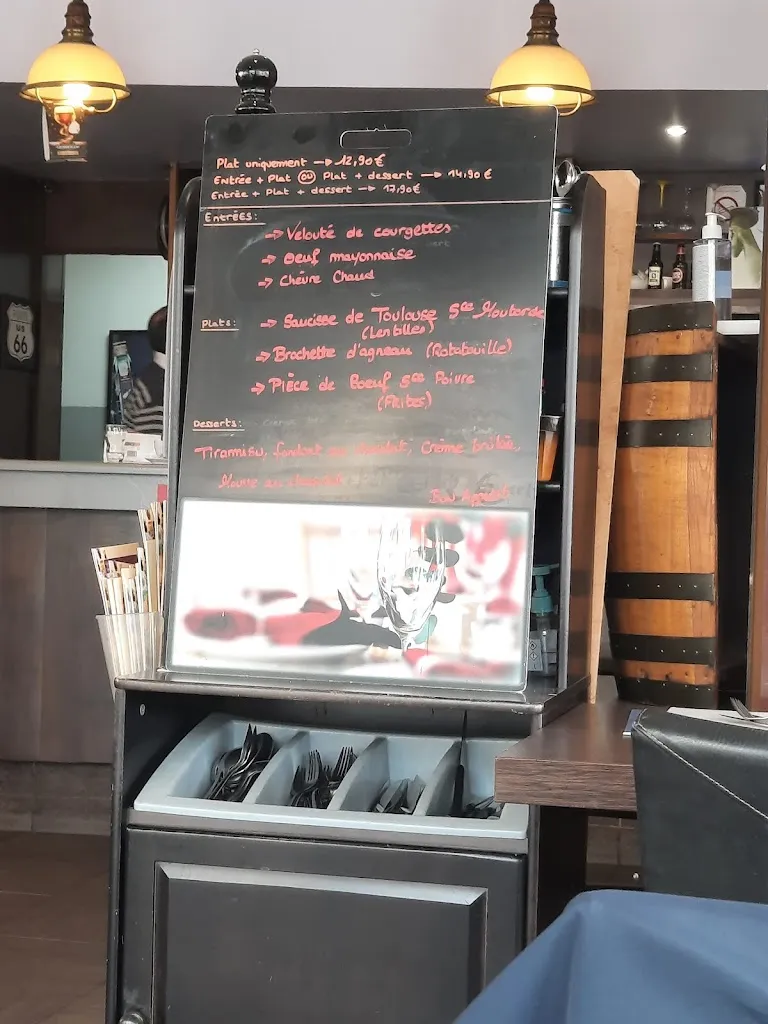 Plat uniquement → 12,90€
Entrée + Plat OU Plat + dessert → 14,90€
Entrée + Plat + dessert → 17,90€
Entrées:
→ Velouté de courgettes
→ Oeuf mayonnaise
→ Chèvre Chaud
Plats: → Saucisse de Toulouse sce Moutarde
(Lentilles)
→ Brochette d'agneau (Ratatouille)
→ Pièce de Boeuf sce Poivre
(Frites)
Desserts:
Tiramisu, fondant au chocolat, Crème brûlée,
au chocolat
Bon Appétit
US
66